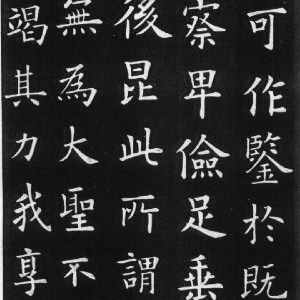 可作鑒於既
察卑儉足垂
後昆此所謂
無為大聖不
竭其力我享